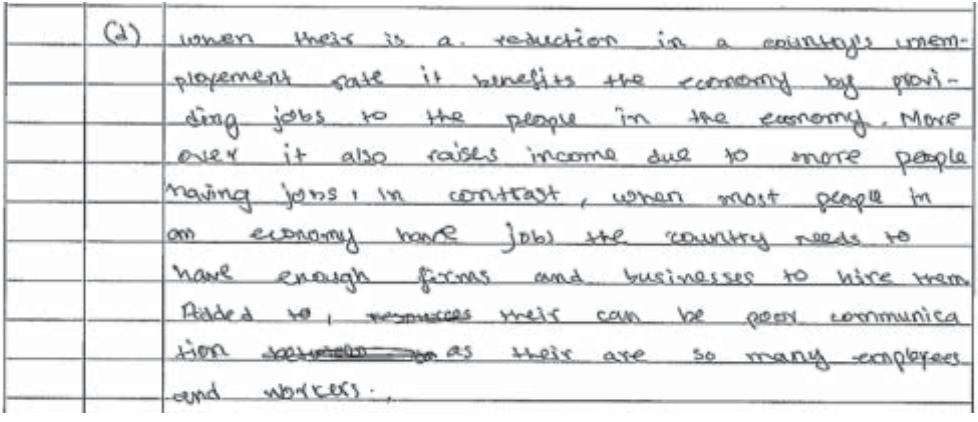 (d) when their is a. reduction in a country's unem-
ployement rate it benefits the economy by provi-
ding jobs to the people in the economy. More
over it also raises income due to more people
having jobs, in contrast, when most people in
an economy have jobs the country needs to
have enough firms and businesses to hire them
Added to, resources their can be poor communica
tion as their are so many employees
and workers.